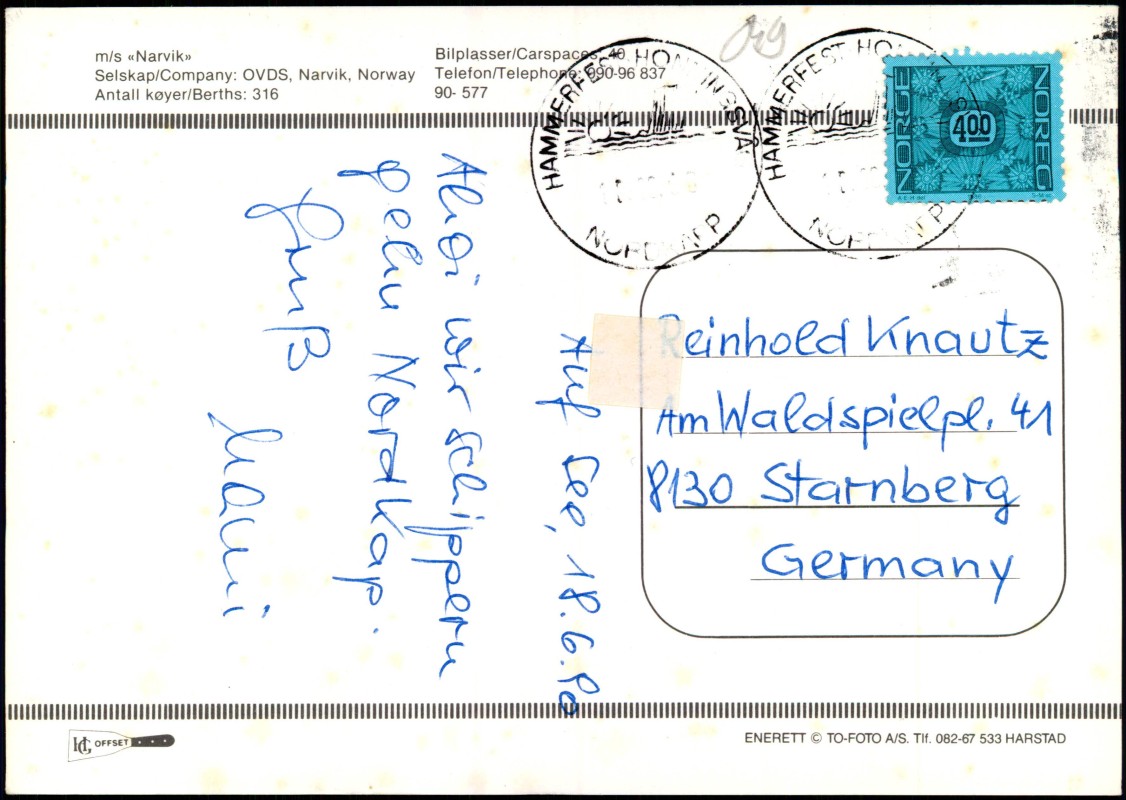 m/s «Narvik»
Selskap/Company: OVDS, Narvik, Norway
Antall køyer/Berths: 316
Bilplasser/Carspaces: 40
Telefon/Telephone: 090-96 837
90- 577
HAMMERFEST HONNINGSVÅG
NORDKAPP
HAMMERFEST HONNINGSVÅG
NORDKAPP
NORGE
4.00
NOREG
Auf See, 18.6.90
Ahoi wir schippern
gehn Nordkap.
Gruß
Mani
Reinhold Knautz
Am Waldspielpl. 41
8130 Starnberg
Germany
HG OFFSET
ENERETT © TO-FOTO A/S. Tlf. 082-67 533 HARSTAD